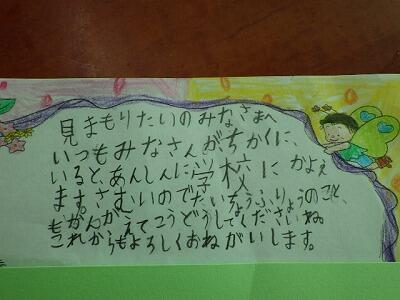 見まもりたいのみなさまへ
いつもみなさんがちかくに、
いると、あんしんに学校にかよえ
ます。さむいのでたいちょうふりょうのこと、
もかんがえてこうどうしてくださいね。
これからもよろしくおねがいします。